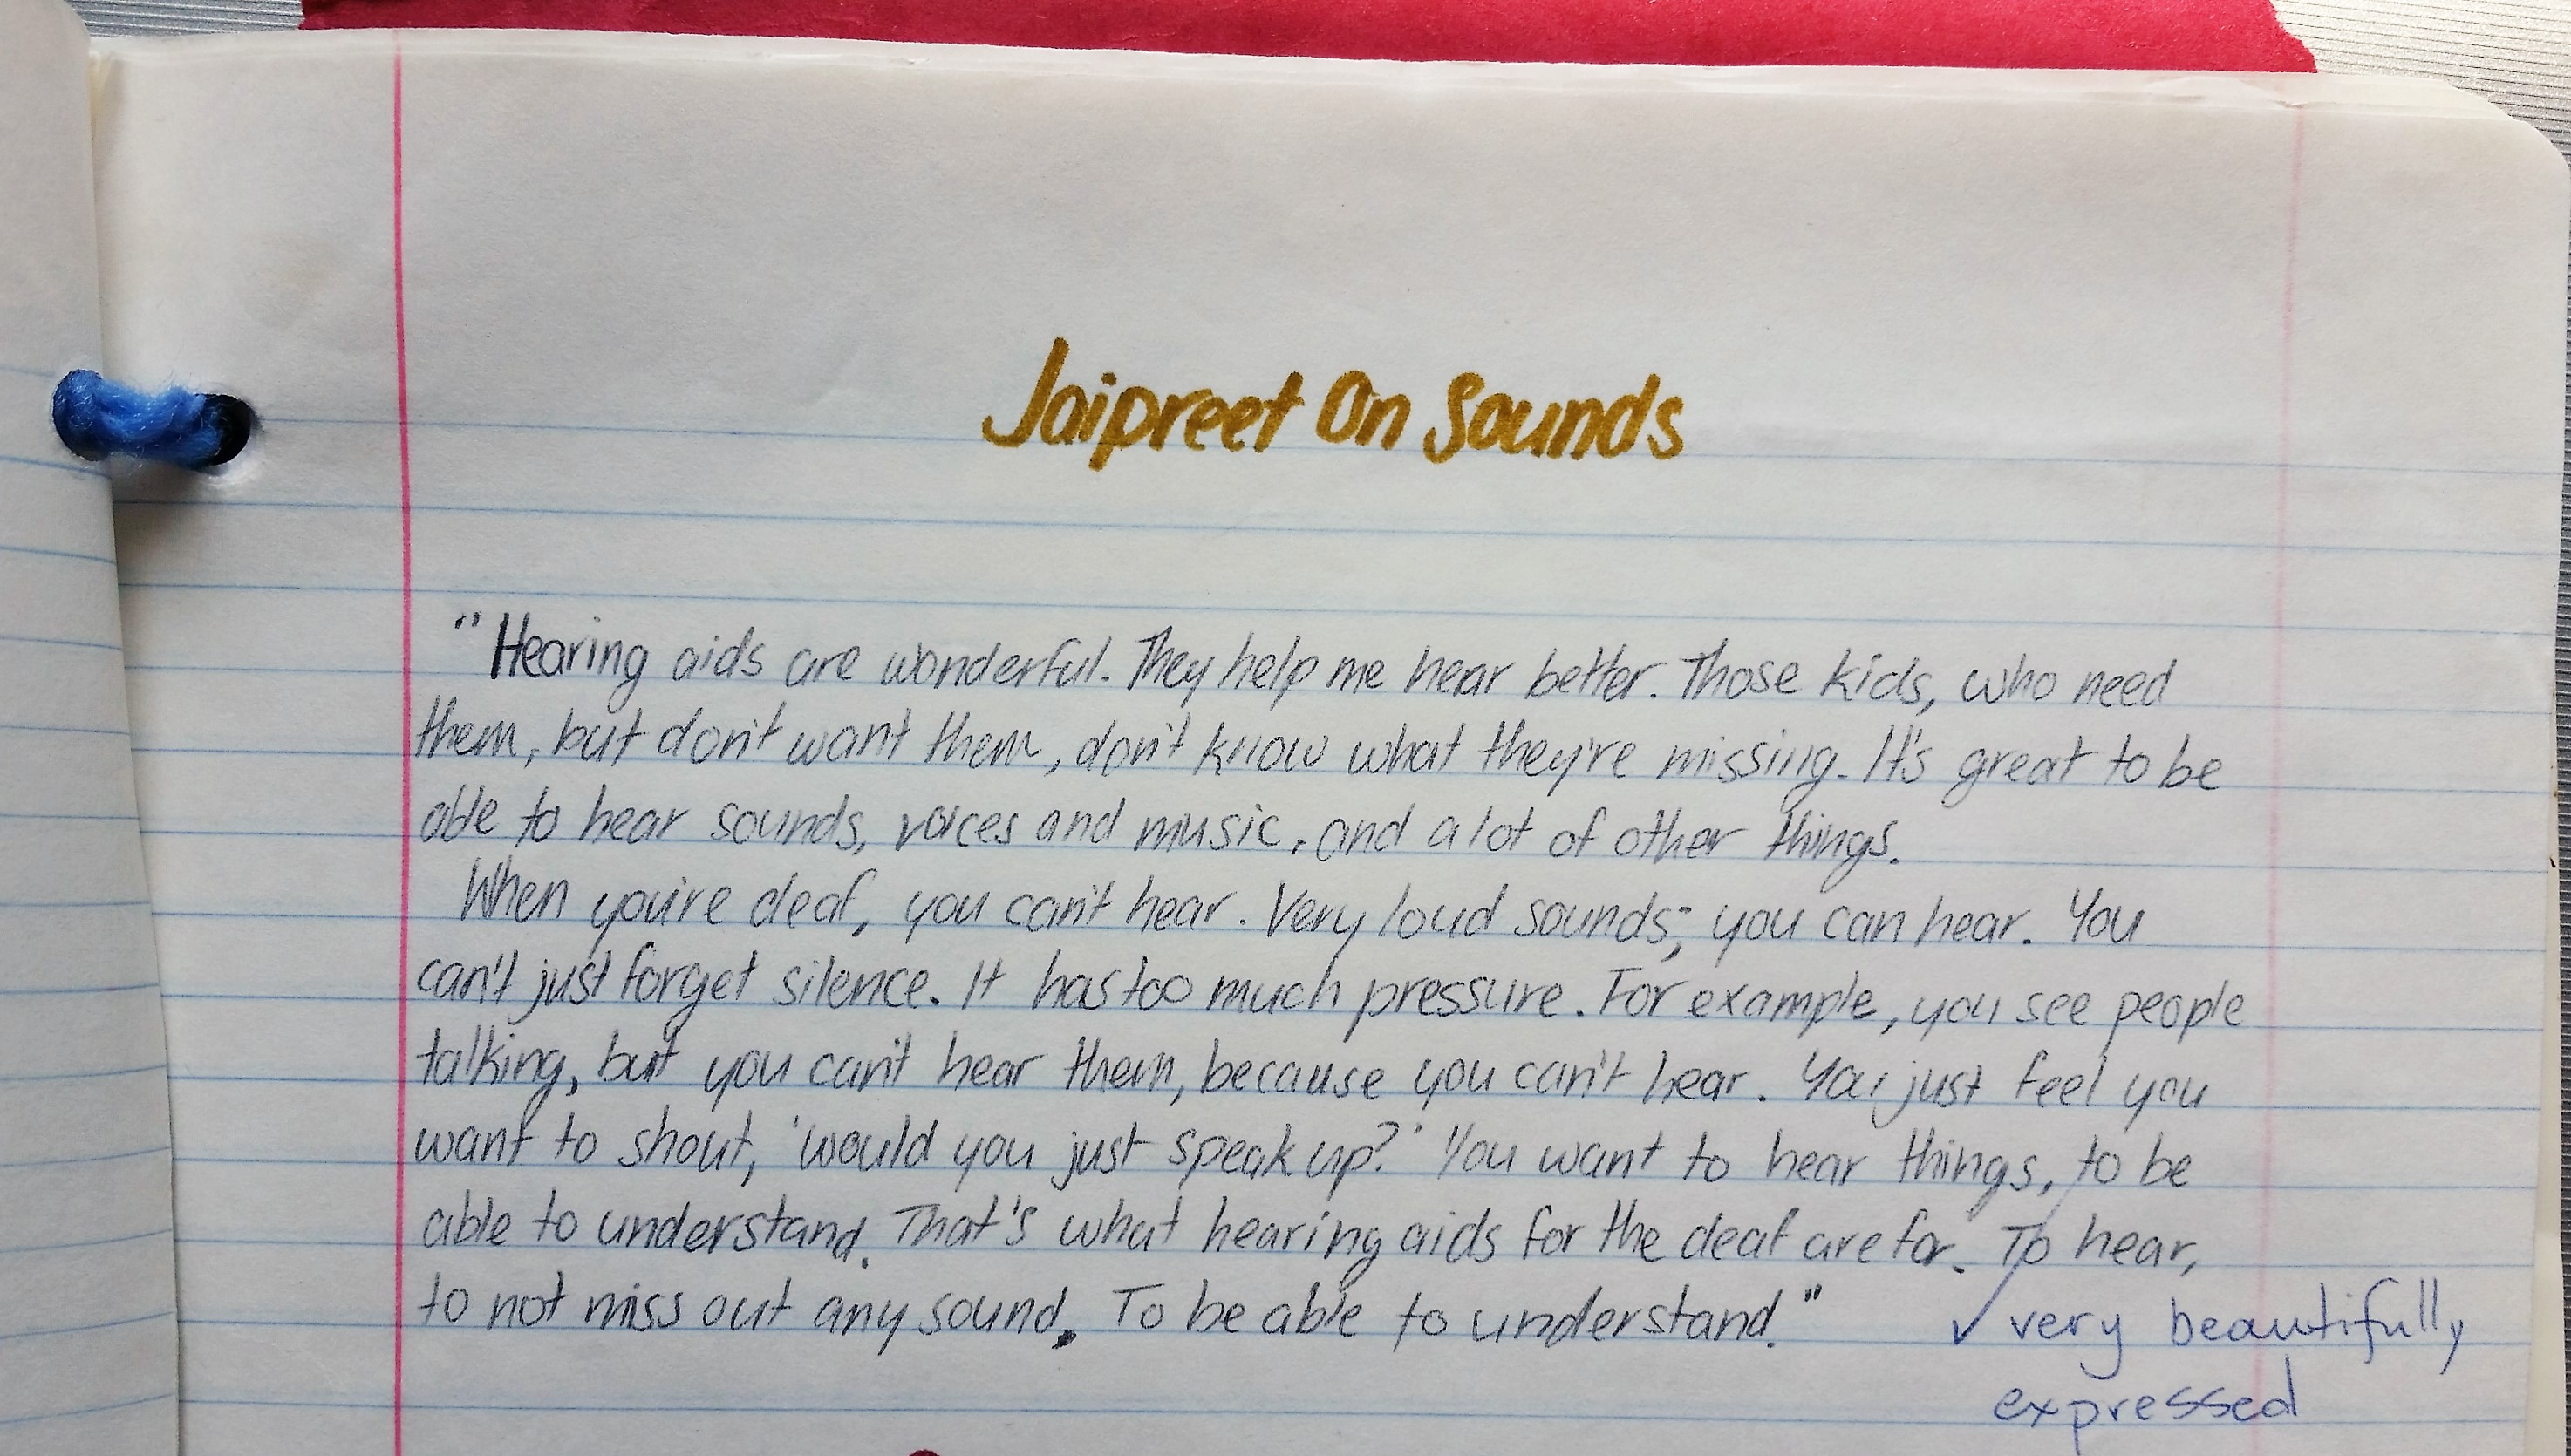 Jaipreet On Sounds
"Hearing aids are wonderful. They help me hear better. Those kids, who need
them, but don't want them, don't know what they're missing. It's great to be
able to hear sounds, voices and music, and a lot of other things.
When you're deaf, you can't hear. Very loud sounds; you can hear. You
can't just forget silence. It has too much pressure. For example, you see people
talking, but you can't hear them, because you can't hear. You just feel you
want to shout, 'would you just speak up?' You want to hear things, to be
able to understand. That's what hearing aids for the deaf are for. To hear,
to not miss out any sound. To be able to understand."
✓ very beautifully
expressed